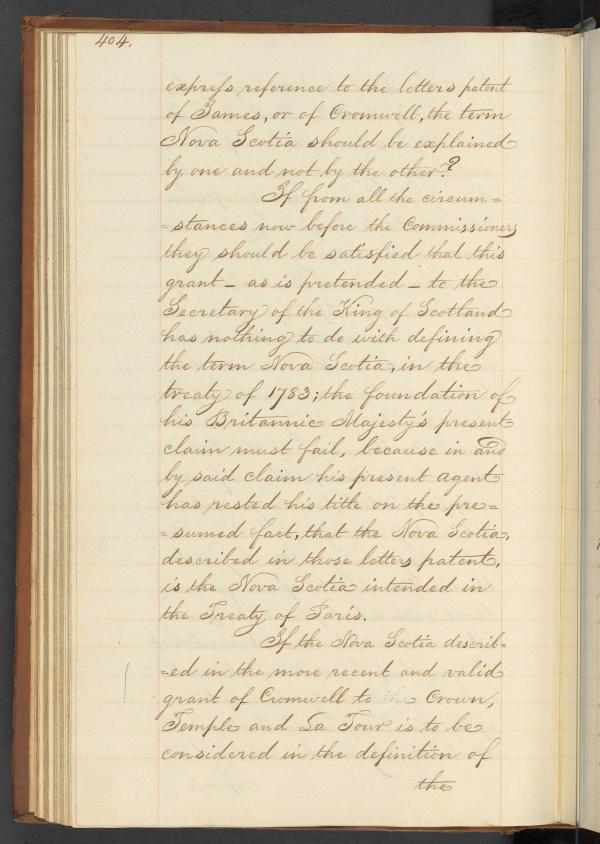 404.
express reference to the letters patent
of James, or of Cromwell, the term
Nova Scotia should be explained
by one and not by the other?
If from all the circum=
=stances now before the Commissioners
they should be satisfied that this
grant – as is pretended – to the
Secretary of the King of Scotland
has nothing to do with defining
the term Nova Scotia, in the
treaty of 1783; the foundation of
his Britannic Majesty's present
claim must fail, because in and
by said claim his present agent
has rested his title on the pre=
=sumed fact, that the Nova Scotia,
described in those letters patent,
is the Nova Scotia intended in
the Treaty of Paris.
If the Nova Scotia describ=
=ed in the more recent and valid
grant of Cromwell to the Crown,
Temple and La Tour is to be
considered in the definition of
the